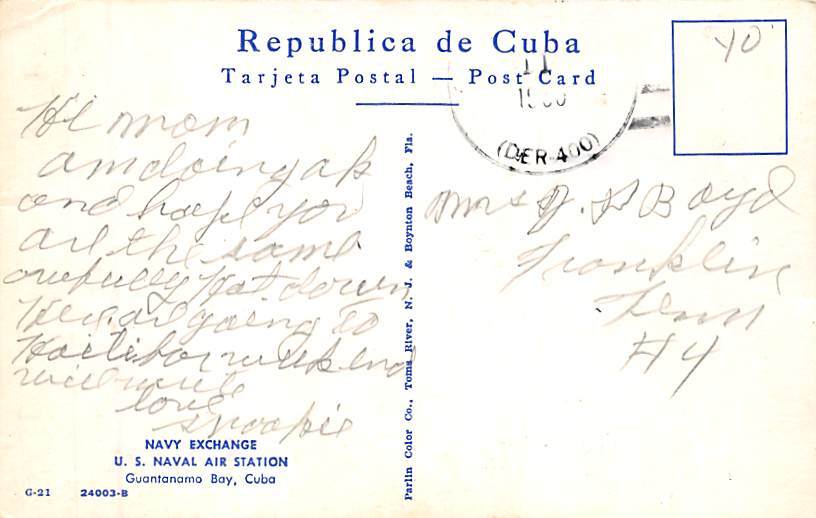 Republica de Cuba
Tarjeta Postal — Post Card
11
(DER-400)
40
Hi mom
am doing ok
and hope you
are the same
awfully Hot down
Here. are going to
Haiti for week end
will write
love
Snookie
Mrs J. H Boyd
Franklin
Tenn
#4
Parlin Color Co., Toms River, N. J. & Boynton Beach, Fla.
NAVY EXCHANGE
U. S. NAVAL AIR STATION
Guantanamo Bay, Cuba
G-21 24003-B